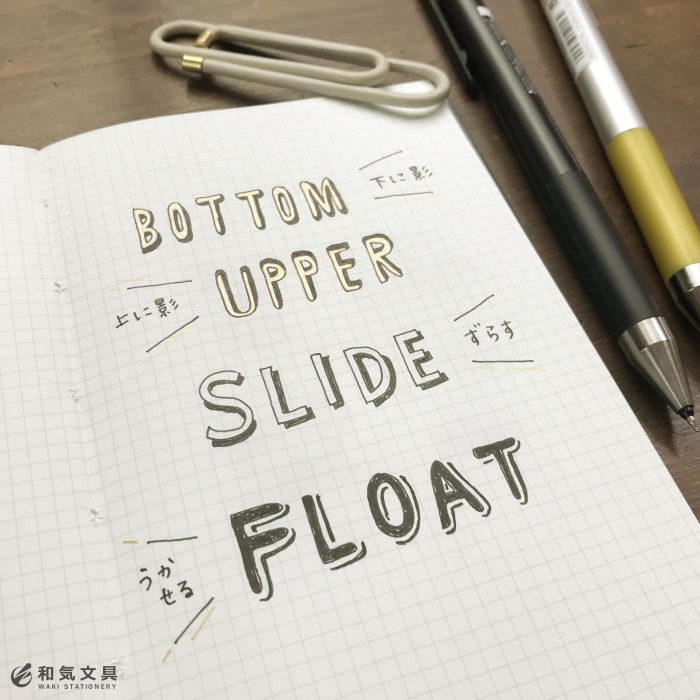 BOTTOM
下に影
UPPER
上に影
SLIDE
ずらす
FLOAT
うか
せる
和気文具
WAKI STATIONERY